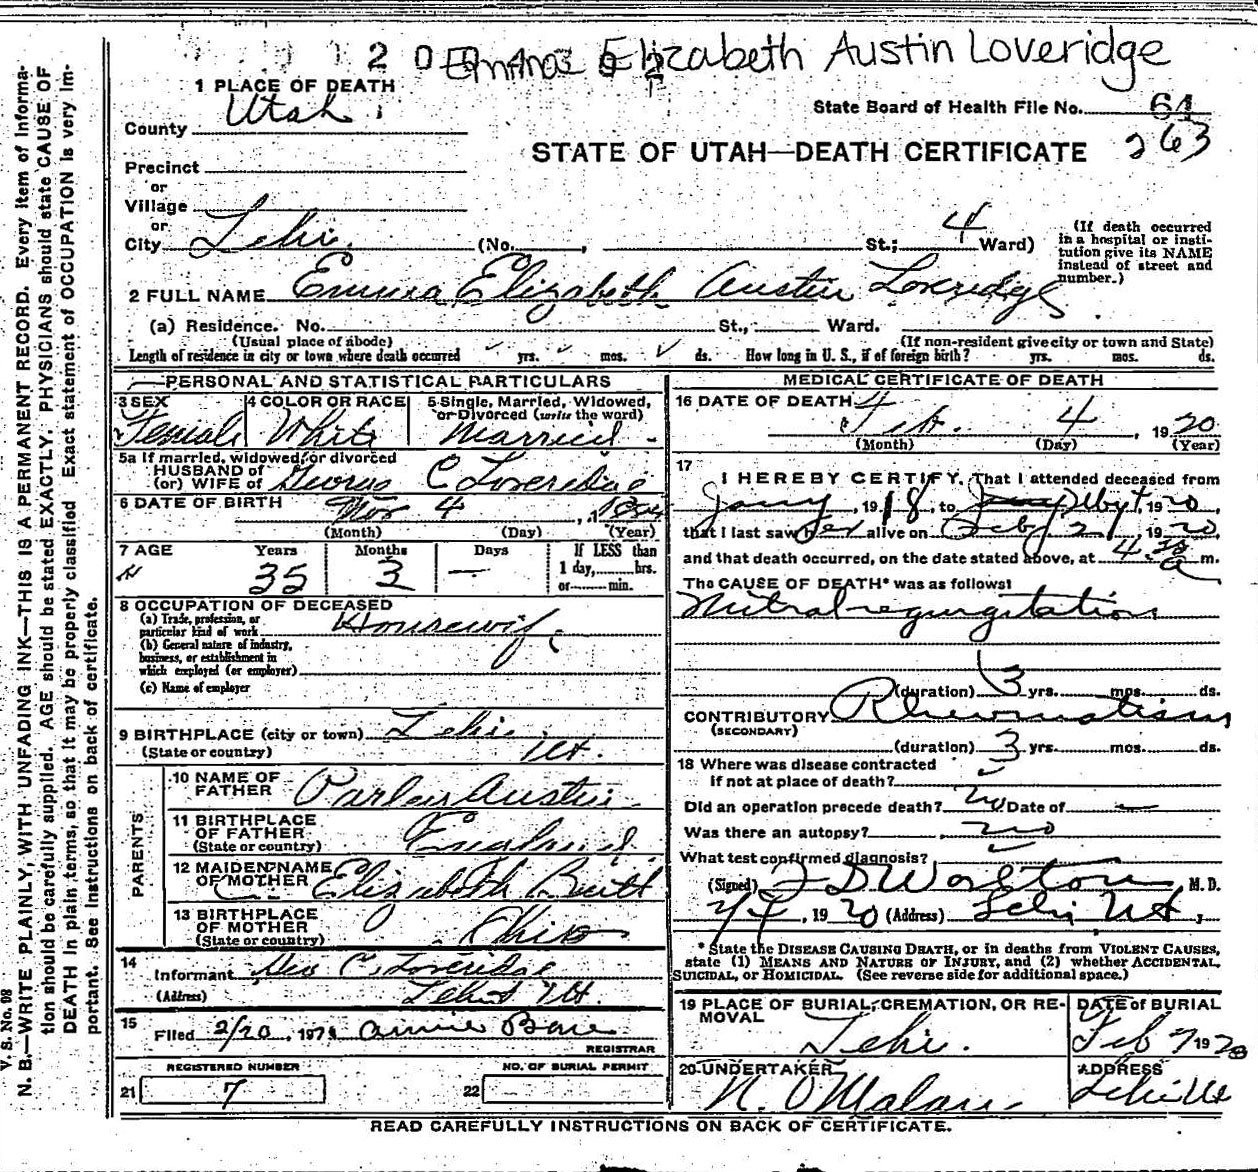 Elizabeth Austin Loveridge
1 PLACE OF DEATH
County Utah
State Board of Health File No. 61
263
STATE OF UTAH—DEATH CERTIFICATE
Precinct
or
Village
or
City Lehi (No. , St.; 4 Ward)
(If death occurred in a hospital or institution give its NAME instead of street and number.)
2 FULL NAME Emma Elizabeth Austin Loveridge
(a) Residence. No. St., Ward.
(Usual place of abode) (If non-resident give city or town and State)
Length of residence in city or town where death occurred yrs. mos. ds. How long in U. S., if of foreign birth? yrs. mos. ds.
PERSONAL AND STATISTICAL PARTICULARS
3 SEX 4 COLOR OR RACE 5 Single, Married, Widowed, or Divorced (write the word)
Female White Married
5a If married, widowed, or divorced
HUSBAND of
(or) WIFE of George C Loveridge
6 DATE OF BIRTH Nov 4, 1884
(Month) (Day) (Year)
7 AGE Years Months Days If LESS than
1 day, hrs.
or min.
35 3 —
8 OCCUPATION OF DECEASED
(a) Trade, profession, or particular kind of work Housewife
(b) General nature of industry, business, or establishment in which employed (or employer)
(c) Name of employer
9 BIRTHPLACE (city or town) Lehi
(State or country) Ut.
PARENTS
10 NAME OF FATHER Parley Austin
11 BIRTHPLACE OF FATHER England
(State or country)
12 MAIDEN NAME OF MOTHER Elizabeth
13 BIRTHPLACE OF MOTHER Ohio
(State or country)
14
Informant Geo C. Loveridge
(Address) Lehi Ut.
15
Filed 2/20, 19 Annie
REGISTRAR
REGISTERED NUMBER NO. OF BURIAL PERMIT
21 7 22
MEDICAL CERTIFICATE OF DEATH
16 DATE OF DEATH
Feb. 4, 1920
(Month) (Day) (Year)
17
I HEREBY CERTIFY, That I attended deceased from
Jany, 1918, to 1920,
that I last saw her alive on Feby 2, 1920
and that death occurred, on the date stated above, at 4 30 a m.
The CAUSE OF DEATH* was as follows:
Mitral regurgitation
(duration) 3 yrs. mos. ds.
CONTRIBUTORY Rheumatism
(SECONDARY)
(duration) 3 yrs. mos. ds.
18 Where was disease contracted
if not at place of death?
Did an operation precede death? no Date of —
Was there an autopsy? no
What test confirmed diagnosis?
(Signed) F D Worlton M. D.
2/4, 1920 (Address) Lehi Ut
* State the DISEASE CAUSING DEATH, or in deaths from VIOLENT CAUSES,
state (1) MEANS AND NATURE OF INJURY, and (2) whether ACCIDENTAL,
SUICIDAL, or HOMICIDAL. (See reverse side for additional space.)
19 PLACE OF BURIAL, CREMATION, OR REMOVAL DATE of BURIAL
Lehi. Feb 7 1920
20 UNDERTAKER ADDRESS
N. O Malan Lehi Ut
READ CAREFULLY INSTRUCTIONS ON BACK OF CERTIFICATE.
V. S. No. 98
N. B.—WRITE PLAINLY, WITH UNFADING INK—THIS IS A PERMANENT RECORD. Every item of informa-
tion should be carefully supplied. AGE should be stated EXACTLY. PHYSICIANS should state CAUSE OF
DEATH in plain terms, so that it may be properly classified. Exact statement of OCCUPATION is very im-
portant. See instructions on back of certificate.